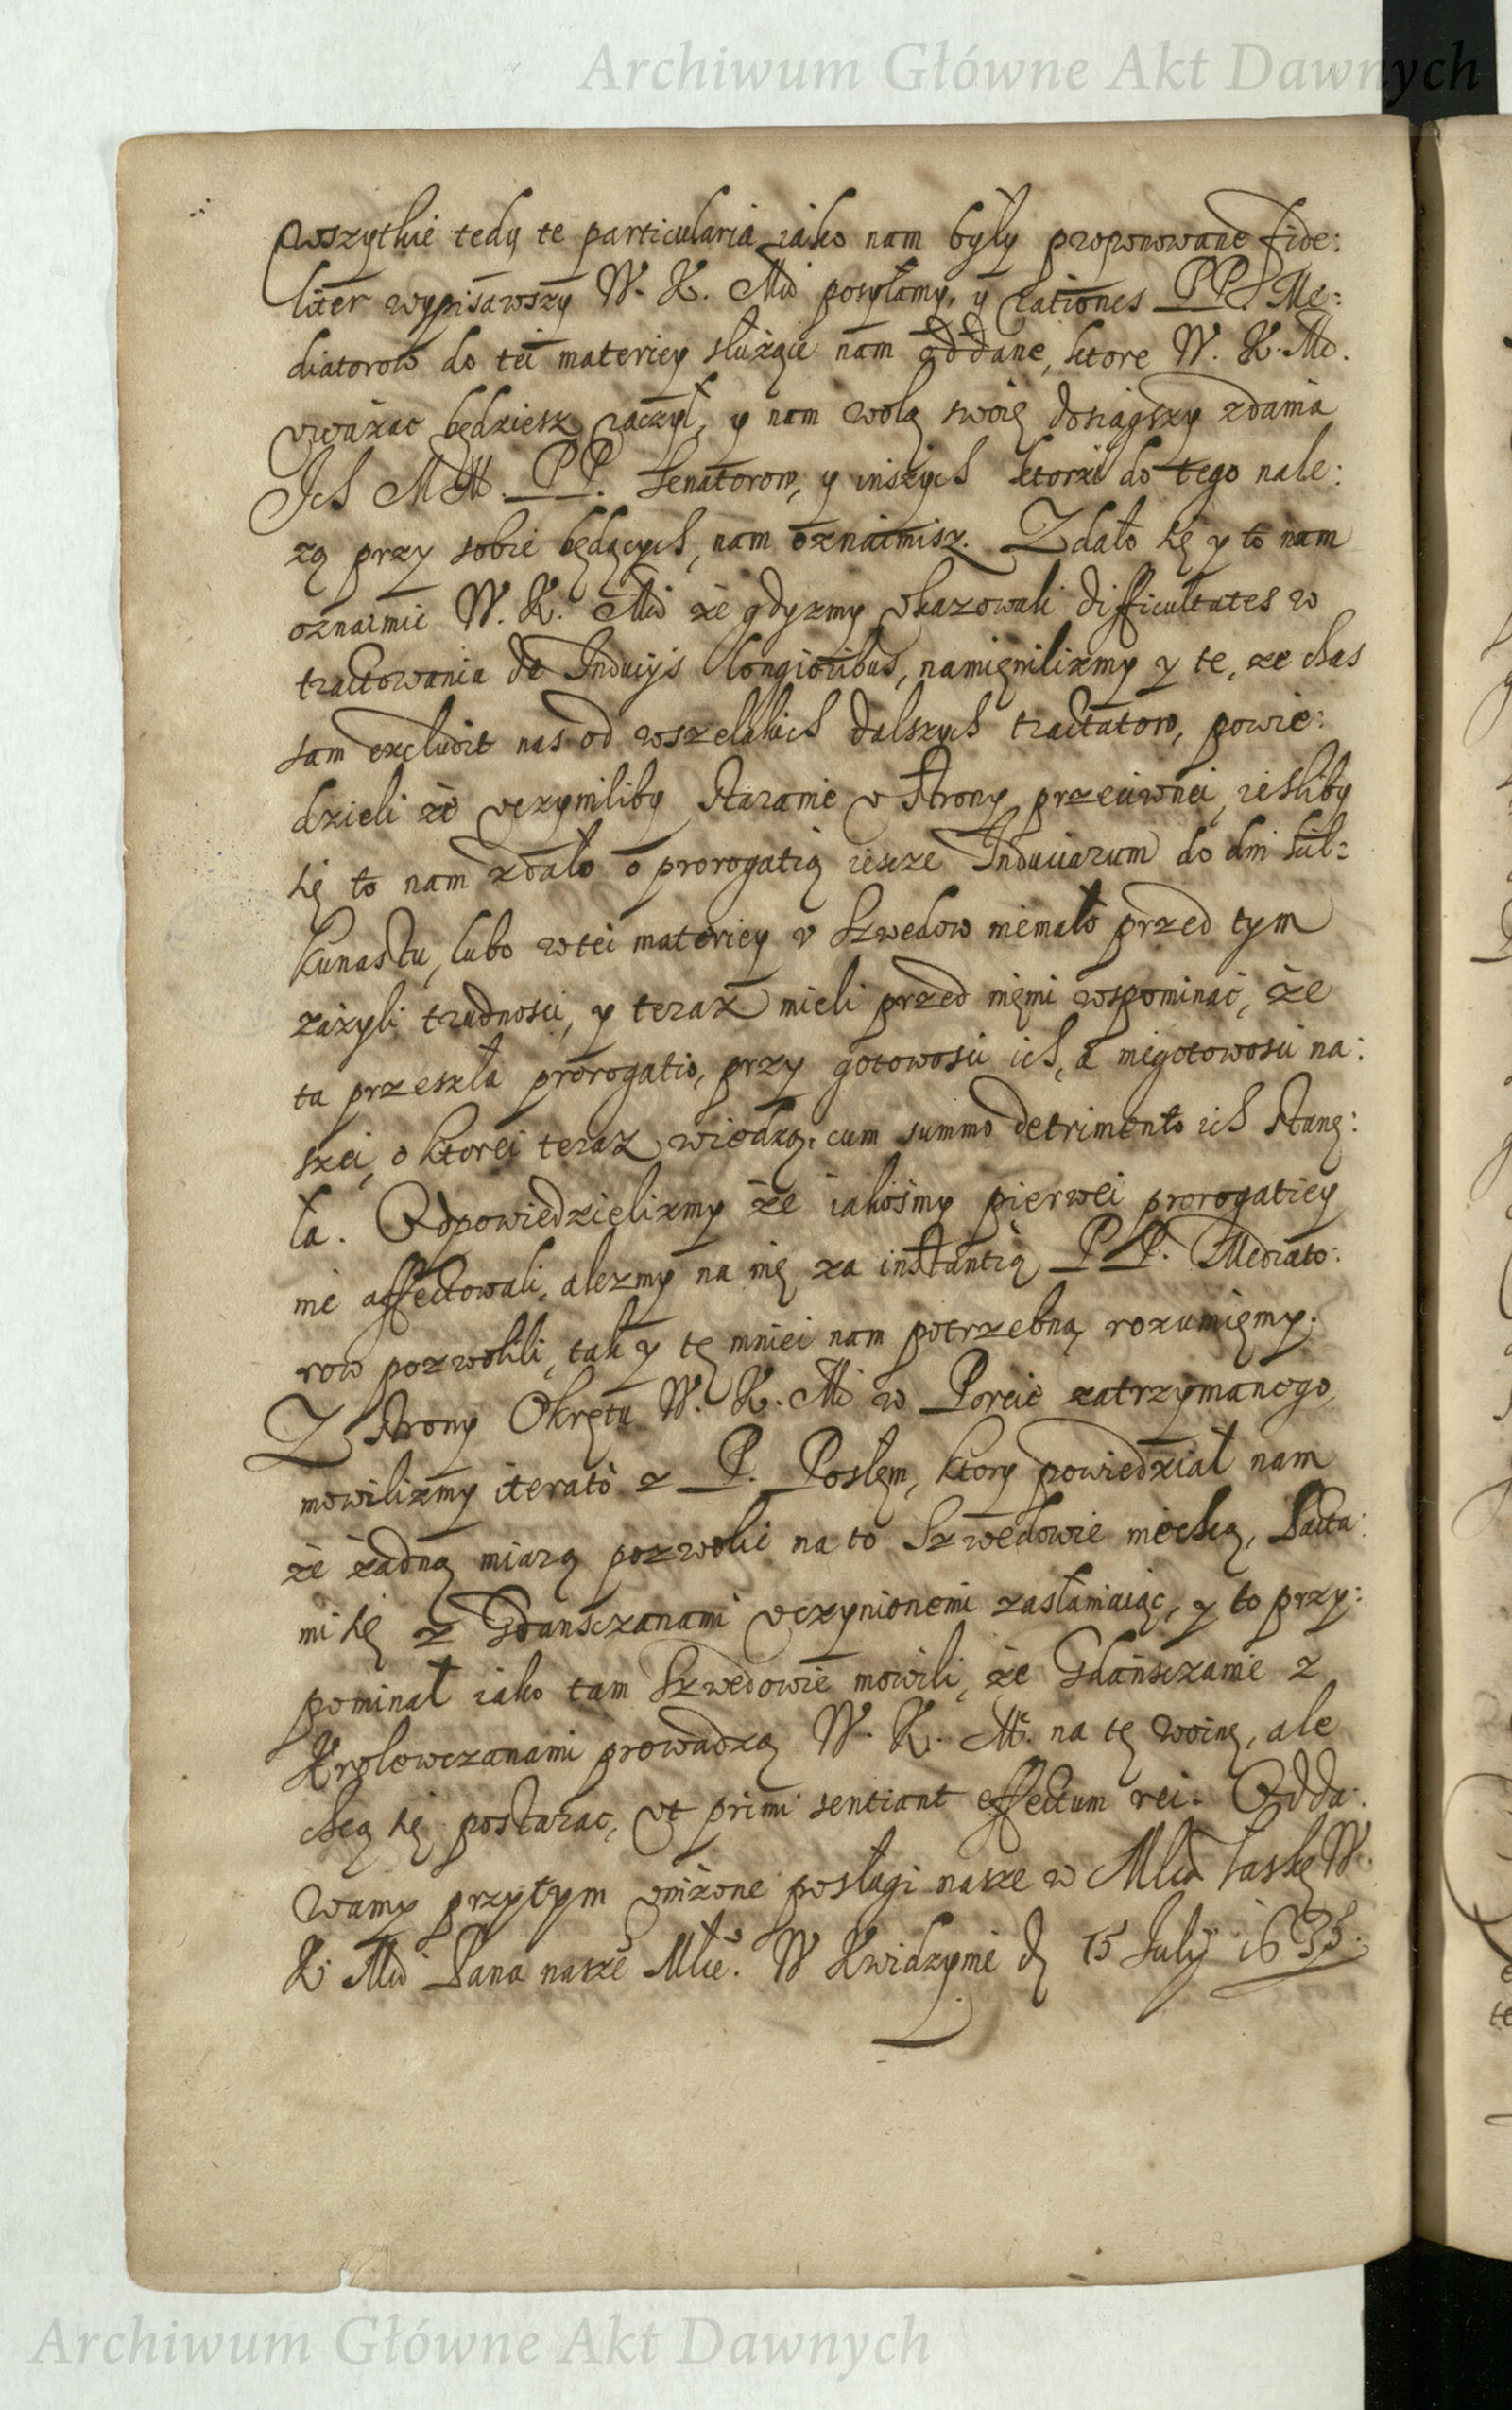 Archiwum Główne Akt Dawnych
wszytkie tedy te particularia iako nam były proponowane fide:
liter wypisawszy W. K. Mći posyłamy, y rationes PP. Me:
diatorow do tei materiey służące nam oddane, ktore W. K. Mć.
vważac będziesz raczył, y nam wolą swoię dosiągszy zdania
Ich MM. PP. Senatorow, y inszych ktorzi do tego nale:
zą przy sobie będących, nam oznaimisz. Zdało się y to nam
oznaimic W. K. Mći że gdyzmy vkazowali difficultates w
tractowania de Inducijs longioribus, namięnilizmy y te, ze chas
sam excludit nas od wszelakich dalszych tractatow, powie:
dzieli że vczyniliby staranie v strony przeciwnei, iesliby
się to nam zdało o prorogatią iescze Induciarum do dni kil:
kunastu, lubo w tei materiey v Szwedow niemało przed tym
zażyli trudnosci, y teraz mieli przed niemi wspominać, że
ta przeszła prorogatio, przy gotowosci ich, a niegotowosci na:
szei, o ktorei teraz wiedzą, cum summo detrimento ich stanę:
ła. Odpowiedzielizmy że iakosmy pierwei prorogatiey
nie affectowali, alezmy na nię za instantią PP. Mediato:
row pozwolili, tak y tę mniei nam potrzebną rozumięmy.
Z strony Okrętu W. K. Mći w Porcie zatrzymanego,
mowilizmy iterato z P. Posłem, ktory powiedział nam
że żadną miarą pozwolic na to Szwedowie niechcą, Pacta:
mi się z Gdansczanami vczynionemi zasłaniaiąc, y to przy:
pominał iako tam Szwedowie mowili, że Gdańsczanie z
Krolewczanami prowadzą W. K. Mć. na tę woinę, ale
chcą się postarac, vt primi sentiant effectum rei. Odda:
wamy przytym vniżone posługi nasze w Młćą łaskę W.
K. Mći Pana nasze Młłe. W Kwidzynie d 15 Julij 1635.
Archiwum Główne Akt Dawnych